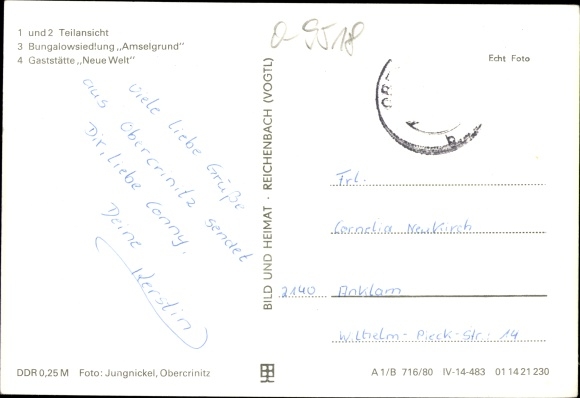 1 und 2 Teilansicht
3 Bungalowsiedlung „Amselgrund"
4 Gaststätte „Neue Welt"
0-9518
Echt Foto
Viele liebe Grüße
aus Obercrinitz sendet
Dir, liebe Conny.
Deine
Kerstin
BILD UND HEIMAT · REICHENBACH (VOGTL)
Frl.
Cornelia Neukirch
2140 Anklam
Wilhelm-Pieck-Str. 14
DDR 0,25 M Foto: Jungnickel, Obercrinitz
A 1/B 716/80 IV-14-483 01 14 21 230